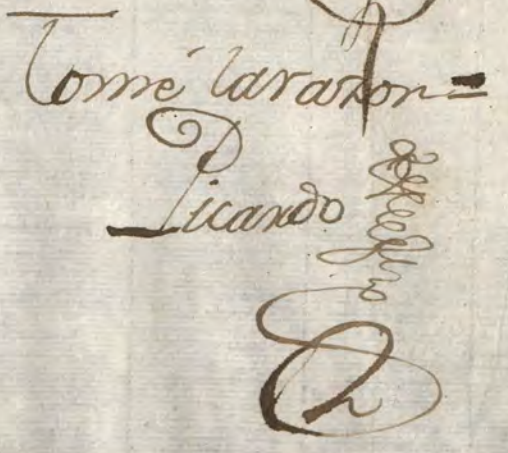 Tomé la razon =
Picardo